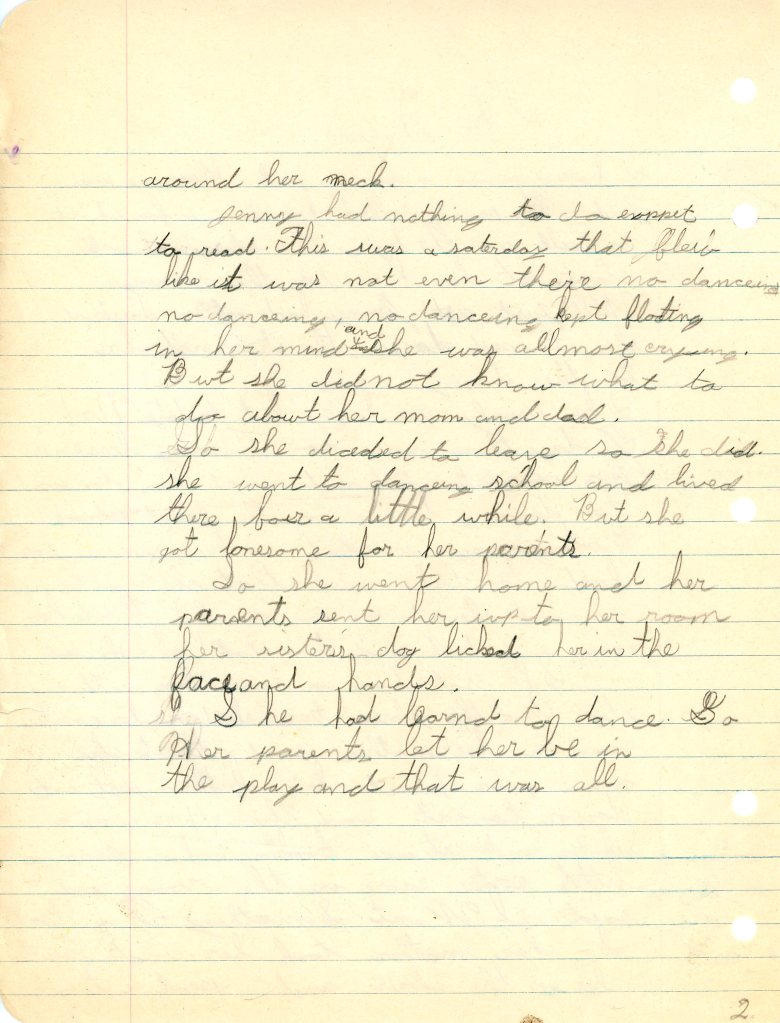 around her meck.
Jenny had nothing to do exxpet
to read. This was a saterday that flew
like it was not even there no danceing
no danceing, no danceing kept floating
in her mind and she was allmost crying.
But she did not know what to
do about her mom and dad.
So she diceded to leave so she did.
she went to danceing school and lived
there foir a little while. But she
got lonesome for her parents.
So she went home and her
parents sent her up to her room
her sister's dog licked her in the
face and hands.
She had learnd to dance. So
Her parents let her be in
the play and that was all.
2.